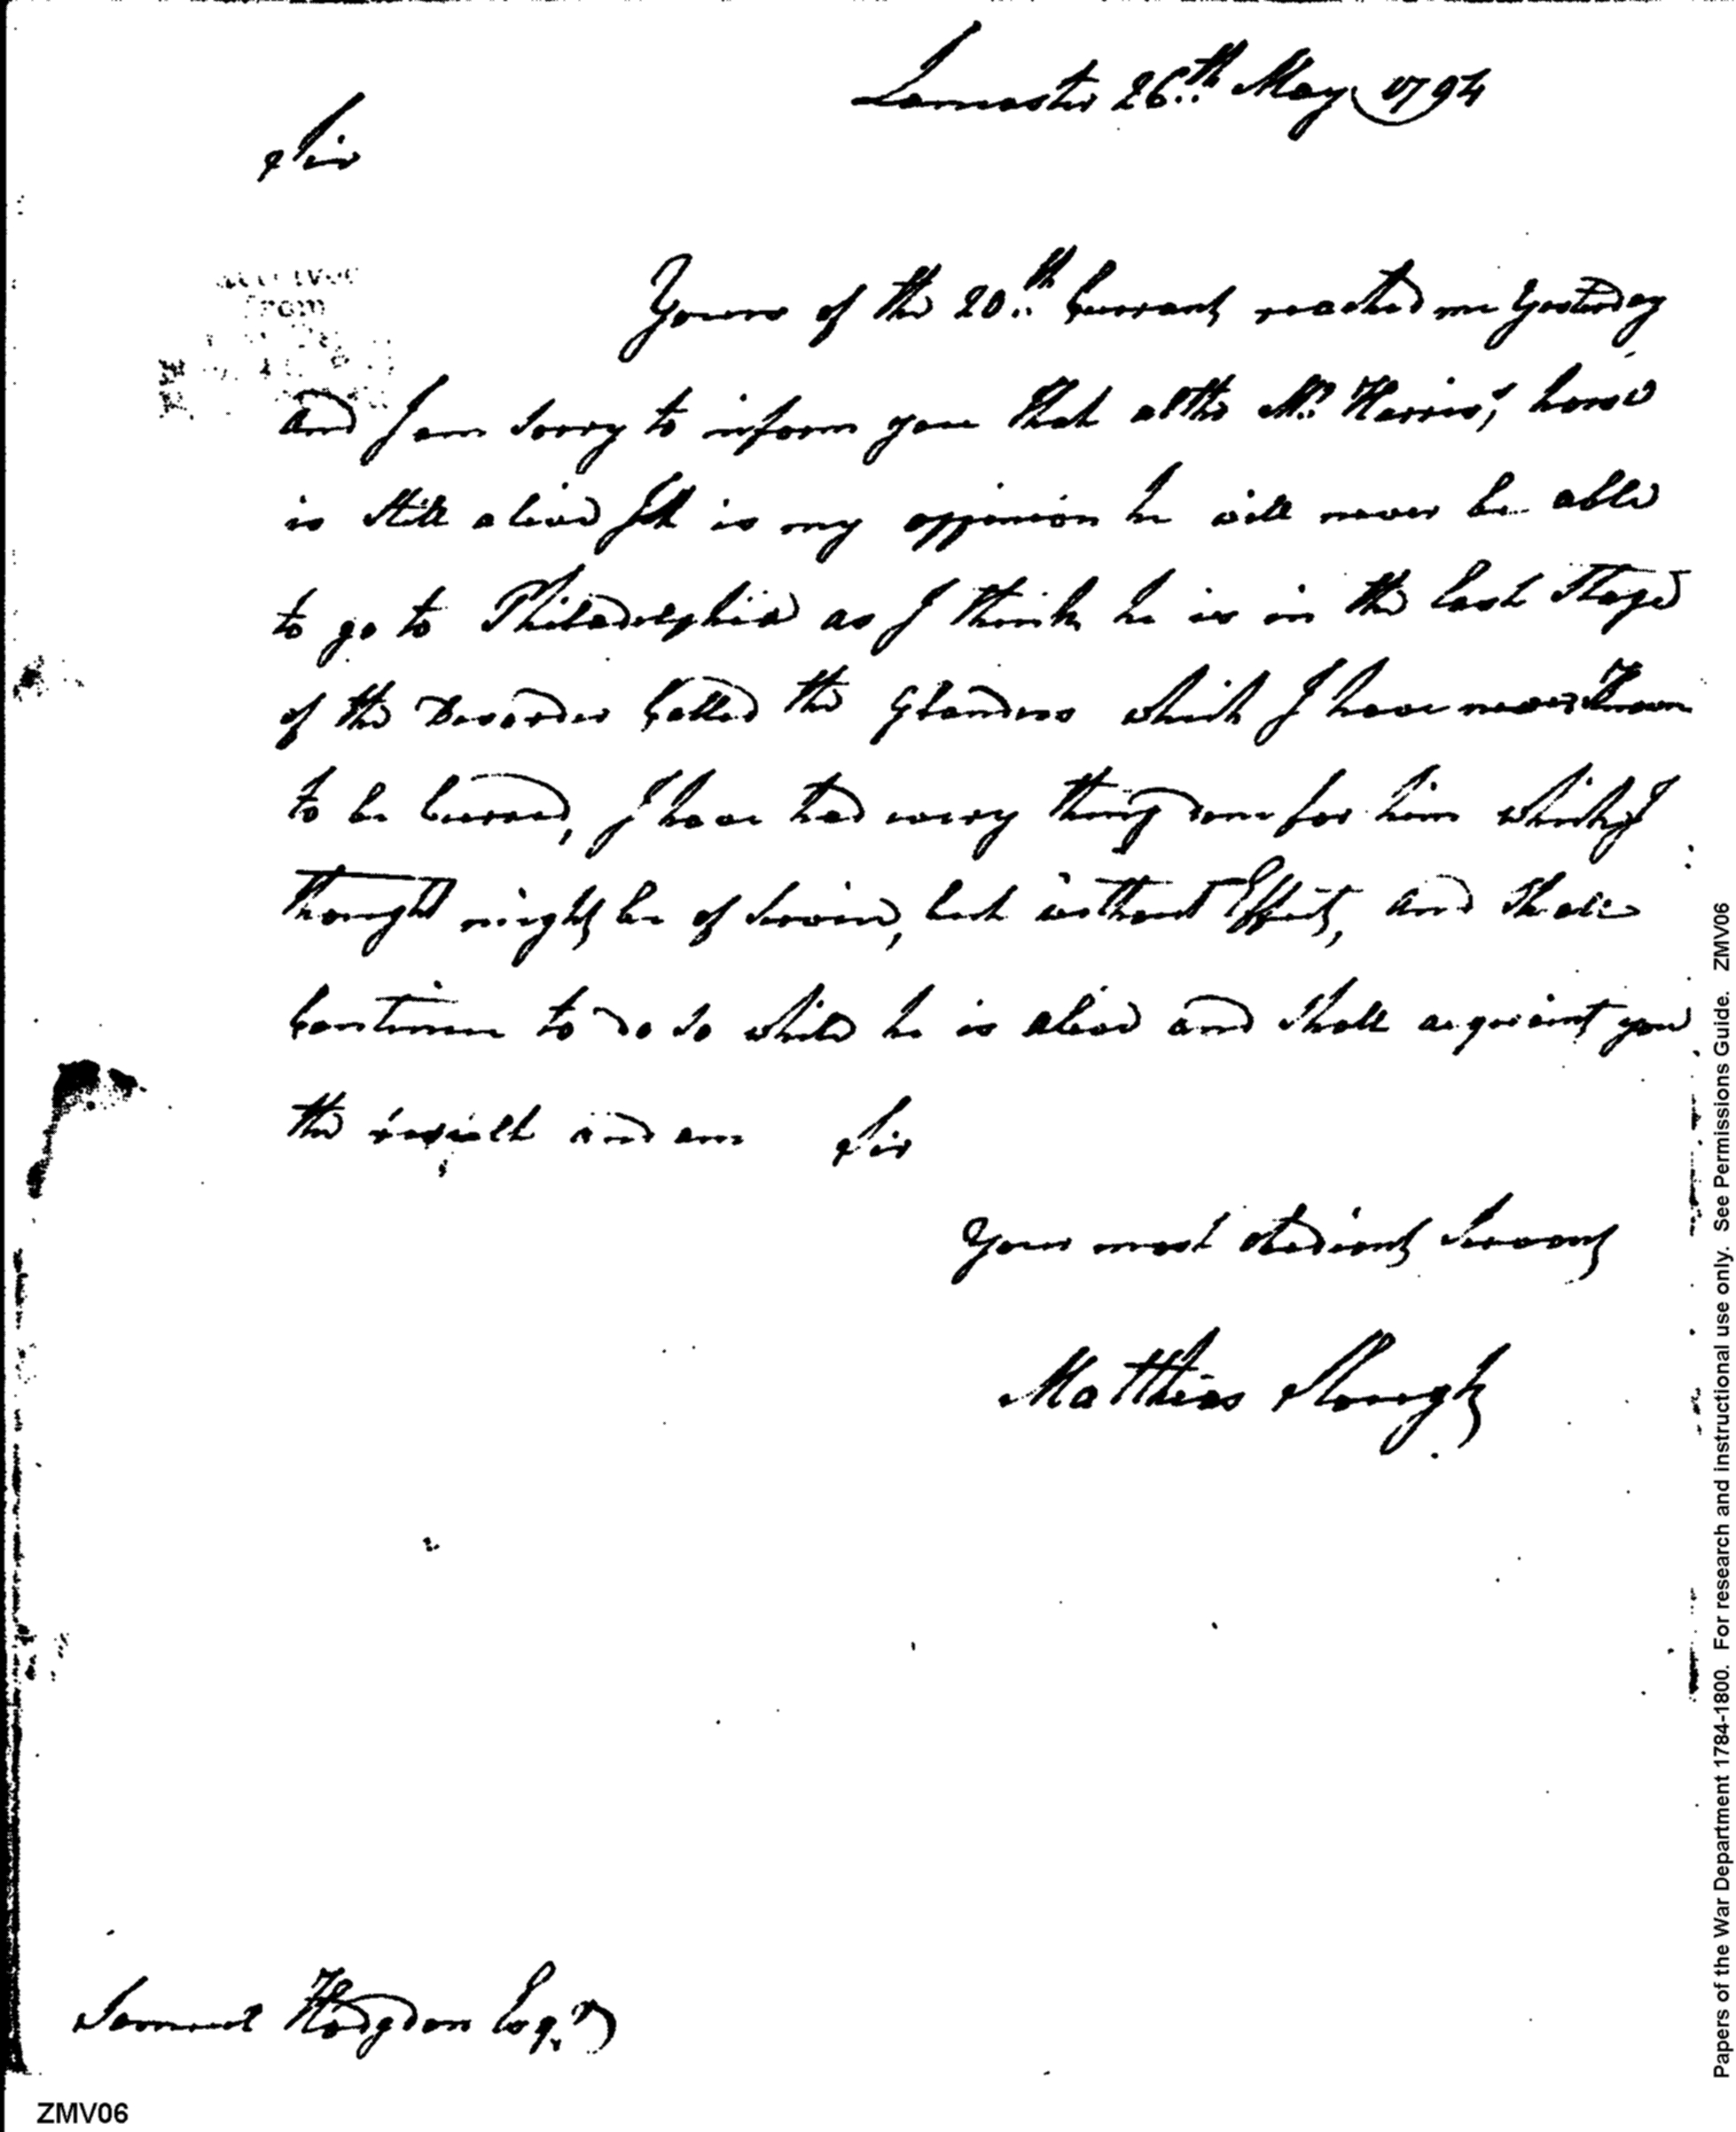 Lancaster 26th May 1794
Sir
Yours of the 20th Currant reached me Yesterday
and I am Sorry to inform you that altho Mr. Harris's horse
is Still alive Yet is my oppinion he will never be able
to go to Philadelphia as I think he is in the last Stage
of the Disorder Called the Glanders which I have never Known
to be Cured, I have had every thing done for him which I
thought might be of Service, but without Effect, and Shall
Continue to do So while he is alive and Shall acquaint you
the result and am Sir
Your most obedient Servant
Matthias Slough
Samuel Hodgdon Esqr.
ZMV06
Papers of the War Department 1784-1800. For research and instructional use only. See Permissions Guide. ZMV06